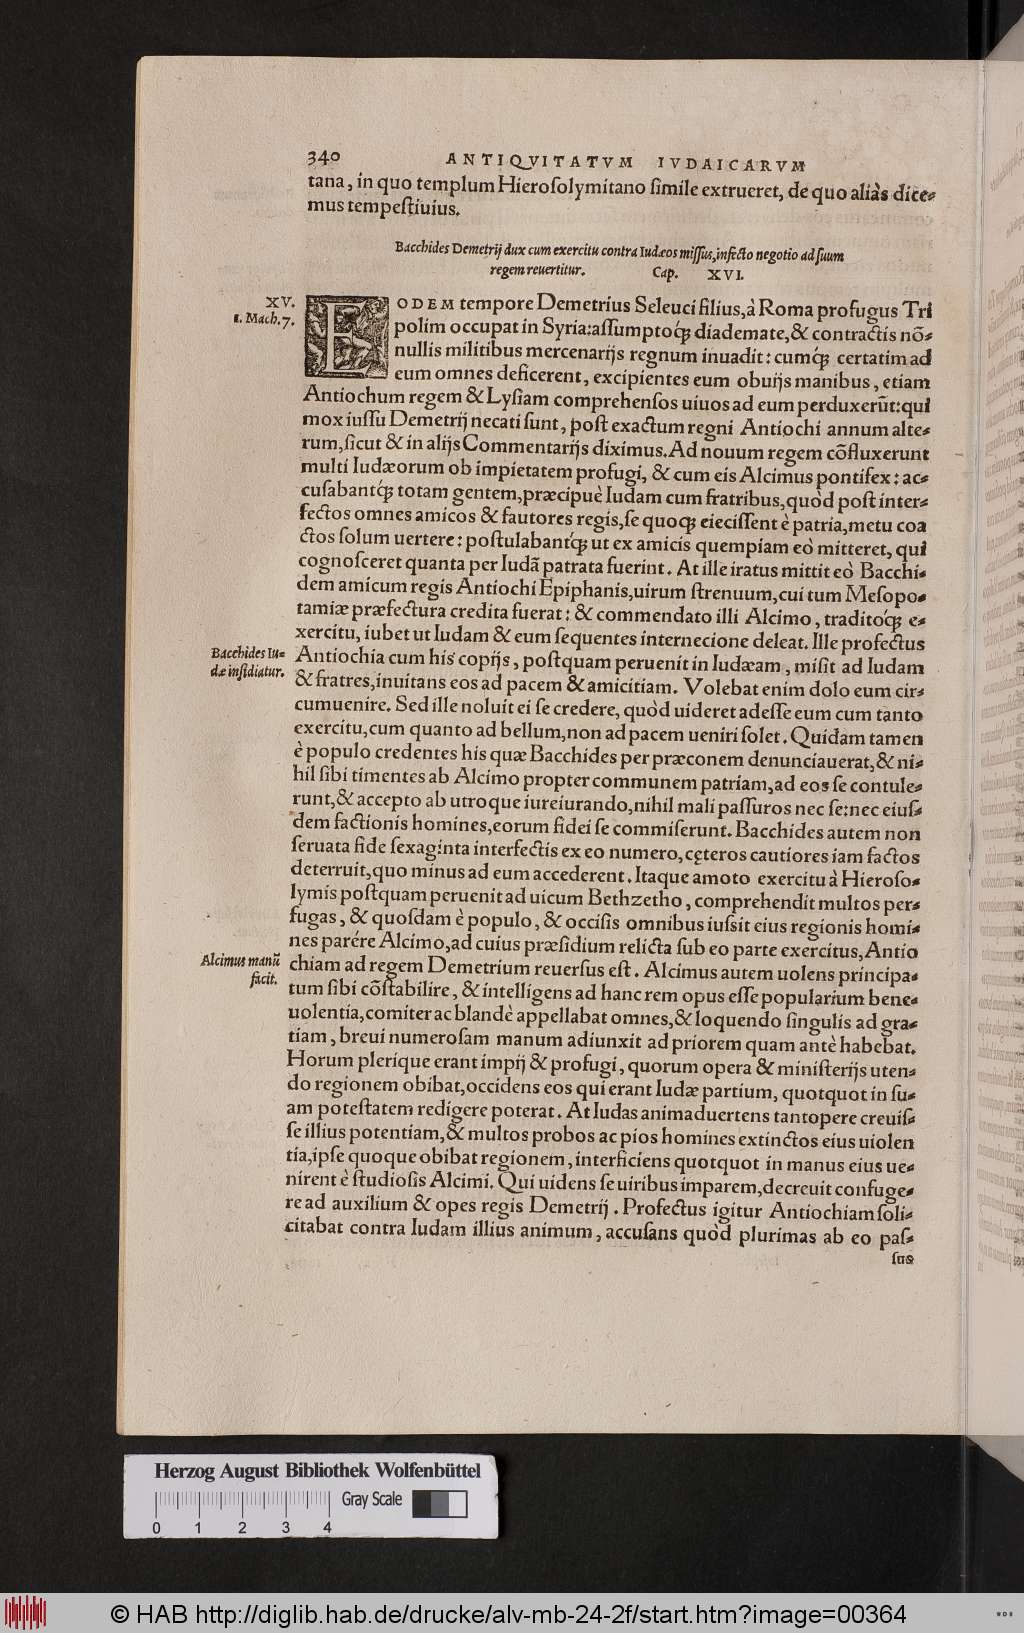 340 ANTIQVITATVM IVDAICARVM
tana, in quo templum Hierosolymitano simile extrueret, de quo aliàs dice-
mus tempestiuius.
Bacchides Demetrij dux cum exercitu contra Iudæos missus, infecto negotio ad suum
regem reuertitur. Cap. XVI.
XV.
1. Mach. 7.
EODEM tempore Demetrius Seleuci filius, à Roma profugus Tri
polim occupat in Syria: assumptoq́; diademate, & contractis nõ-
nullis militibus mercenarijs regnum inuadit: cumq́; certatim ad
eum omnes deficerent, excipientes eum obuijs manibus, etiam
Antiochum regem & Lysiam comprehensos uiuos ad eum perduxerũt: qui
mox iussu Demetrij necati sunt, post exactum regni Antiochi annum alte-
rum, sicut & in alijs Commentarijs diximus. Ad nouum regem cõfluxerunt
multi Iudæorum ob impietatem profugi, & cum eis Alcimus pontifex: ac-
cusabantq́; totam gentem, præcipuè Iudam cum fratribus, quòd post inter-
fectos omnes amicos & fautores regis, se quoq; eiecissent è patria, metu coa
ctos solum uertere: postulabantq́; ut ex amicis quempiam eò mitteret, qui
cognosceret quanta per Iudã patrata fuerint. At ille iratus mittit eò Bacchi-
dem amicum regis Antiochi Epiphanis, uirum strenuum, cui tum Mesopo-
tamiæ præfectura credita fuerat: & commendato illi Alcimo, traditoq́; e-
xercitu, iubet ut Iudam & eum sequentes internecione deleat. Ille profectus
Bacchides Iu-
dæ insidiatur.
Antiochia cum his copijs, postquam peruenit in Iudæam, misit ad Iudam
& fratres, inuitans eos ad pacem & amicitiam. Volebat enim dolo eum cir-
cumuenire. Sed ille noluit ei se credere, quòd uideret adesse eum cum tanto
exercitu, cum quanto ad bellum, non ad pacem ueniri solet. Quidam tamen
è populo credentes his quæ Bacchides per præconem denunciauerat, & ni-
hil sibi timentes ab Alcimo propter communem patriam, ad eos se contule-
runt, & accepto ab utroque iureiurando, nihil mali passuros nec se: nec eius-
dem factionis homines, eorum fidei se commiserunt. Bacchides autem non
seruata fide sexaginta interfectis ex eo numero, cęteros cautiores iam factos
deterruit, quo minus ad eum accederent. Itaque amoto exercitu à Hieroso-
lymis postquam peruenit ad uicum Bethzetho, comprehendit multos per-
fugas, & quosdam è populo, & occisis omnibus iussit eius regionis homi-
nes parére Alcimo, ad cuius præsidium relicta sub eo parte exercitus, Antio
Alcimus manũ
facit.
chiam ad regem Demetrium reuersus est. Alcimus autem uolens principa-
tum sibi cõstabilire, & intelligens ad hanc rem opus esse popularium bene-
uolentia, comiter ac blandè appellabat omnes, & loquendo singulis ad gra-
tiam, breui numerosam manum adiunxit ad priorem quam antè habebat.
Horum plerique erant impij & profugi, quorum opera & ministerijs uten-
do regionem obibat, occidens eos qui erant Iudæ partium, quotquot in su-
am potestatem redigere poterat. At Iudas animaduertens tantopere creuis-
se illius potentiam, & multos probos ac pios homines extinctos eius uiolen
tia, ipse quoque obibat regionem, interficiens quotquot in manus eius ue-
nirent è studiosis Alcimi. Qui uidens se uiribus imparem, decreuit confuge-
re ad auxilium & opes regis Demetrij. Profectus igitur Antiochiam soli-
citabat contra Iudam illius animum, accusans quòd plurimas ab eo pas-
sus
Herzog August Bibliothek Wolfenbüttel
Gray Scale
0 1 2 3 4
© HAB http://diglib.hab.de/drucke/alv-mb-24-2f/start.htm?image=00364